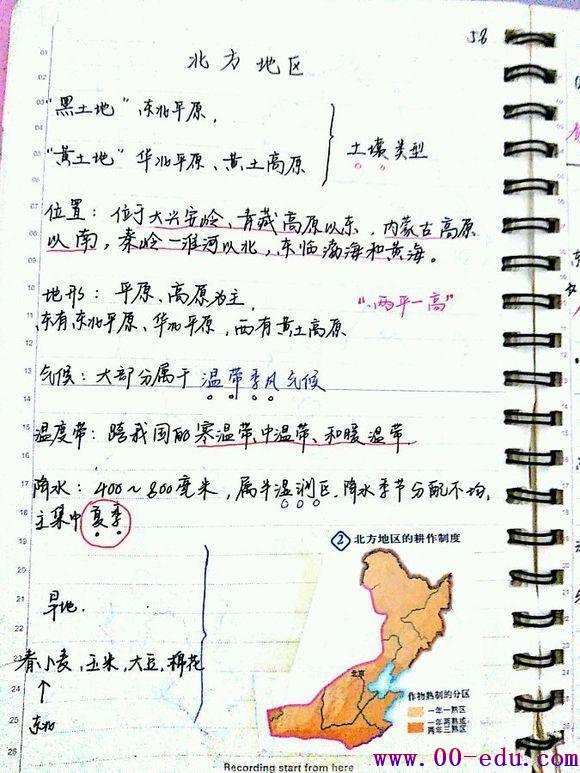 58
北方地区
"黑土地" 东北平原.
"黄土地" 华北平原、黄土高原
土壤类型
位置：位于大兴安岭、青藏高原以东，内蒙古高原
以南，秦岭—淮河以北，东临渤海和黄海。
地形：平原、高原为主.
"两平一高"
东有东北平原、华北平原，西有黄土高原
气候：大部分属于温带季风气候
温度带：跨我国的寒温带、中温带、和暖温带
降水：400～800毫米，属半湿润区.降水季节分配不均,
主集中夏季
旱地.
春小麦,玉米,大豆,棉花
↑
东北
② 北方地区的耕作制度
北京
作物熟制的分区
一年一熟区
一年两熟或
两年三熟区
www.00-edu.com
Recording start from here